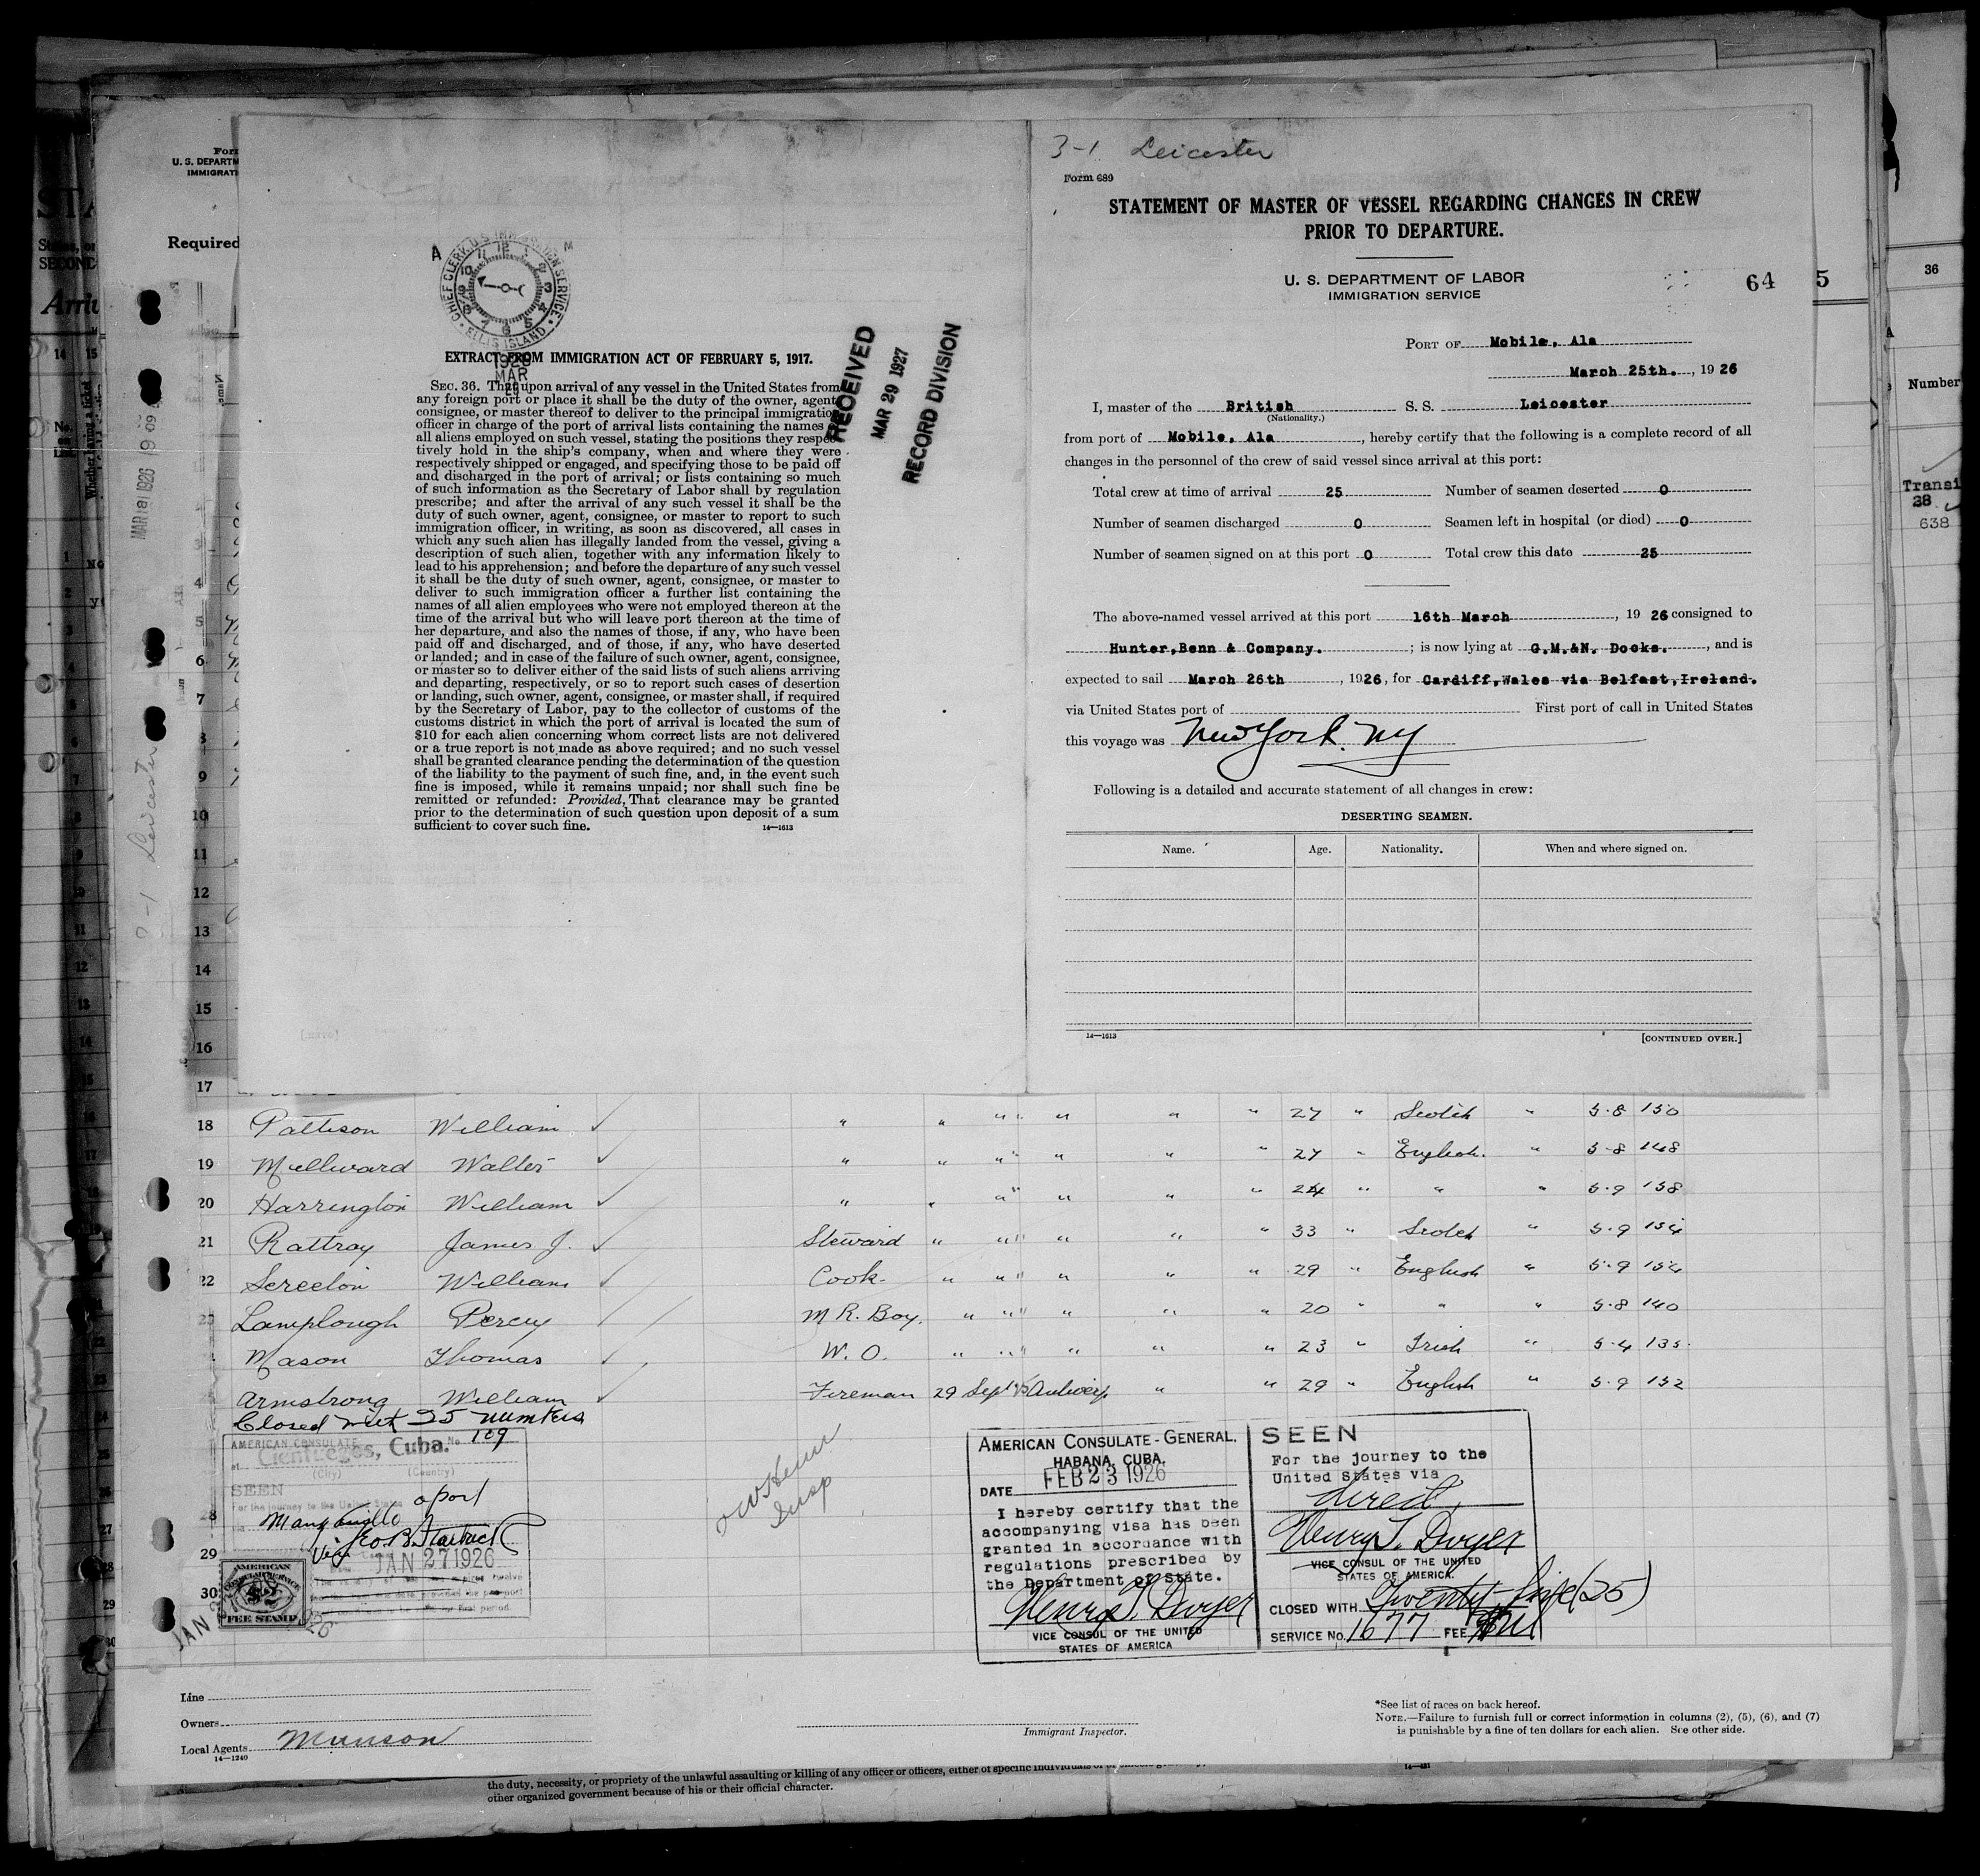 3-1 Leicester
Form 689
STATEMENT OF MASTER OF VESSEL REGARDING CHANGES IN CREW
PRIOR TO DEPARTURE.
U. S. DEPARTMENT OF LABOR
IMMIGRATION SERVICE
64 5
PORT OF Mobile, Ala
March 25th. , 1926
I, master of the British S. S. Leicester
(Nationality.)
from port of Mobile, Ala , hereby certify that the following is a complete record of all
changes in the personnel of the crew of said vessel since arrival at this port:
Total crew at time of arrival 25 Number of seamen deserted 0
Number of seamen discharged 0 Seamen left in hospital (or died) 0
Number of seamen signed on at this port 0 Total crew this date 25
The above-named vessel arrived at this port 16th March , 1926 consigned to
Hunter,Benn & Company. ; is now lying at G.M.&N. Docks. , and is
expected to sail March 26th , 1926, for Cardiff,Wales via Belfast,Ireland.
via United States port of First port of call in United States
this voyage was New York. NY
Following is a detailed and accurate statement of all changes in crew:
DESERTING SEAMEN.
Name. Age. Nationality. When and where signed on.
14—1613 [CONTINUED OVER.]
A M
CHIEF CLERK, U.S. IMMIGRATION SERVICE
ELLIS ISLAND
1926
MAR
RECEIVED
MAR 29 1927
RECORD DIVISION
EXTRACT FROM IMMIGRATION ACT OF FEBRUARY 5, 1917.
SEC. 36. That upon arrival of any vessel in the United States from
any foreign port or place it shall be the duty of the owner, agent,
consignee, or master thereof to deliver to the principal immigration
officer in charge of the port of arrival lists containing the names of
all aliens employed on such vessel, stating the positions they respec-
tively hold in the ship's company, when and where they were
respectively shipped or engaged, and specifying those to be paid off
and discharged in the port of arrival; or lists containing so much
of such information as the Secretary of Labor shall by regulation
prescribe; and after the arrival of any such vessel it shall be the
duty of such owner, agent, consignee, or master to report to such
immigration officer, in writing, as soon as discovered, all cases in
which any such alien has illegally landed from the vessel, giving a
description of such alien, together with any information likely to
lead to his apprehension; and before the departure of any such vessel
it shall be the duty of such owner, agent, consignee, or master to
deliver to such immigration officer a further list containing the
names of all alien employees who were not employed thereon at the
time of the arrival but who will leave port thereon at the time of
her departure, and also the names of those, if any, who have been
paid off and discharged, and of those, if any, who have deserted
or landed; and in case of the failure of such owner, agent, consignee,
or master so to deliver either of the said lists of such aliens arriving
and departing, respectively, or so to report such cases of desertion
or landing, such owner, agent, consignee, or master shall, if required
by the Secretary of Labor, pay to the collector of customs of the
customs district in which the port of arrival is located the sum of
$10 for each alien concerning whom correct lists are not delivered
or a true report is not made as above required; and no such vessel
shall be granted clearance pending the determination of the question
of the liability to the payment of such fine, and, in the event such
fine is imposed, while it remains unpaid; nor shall such fine be
remitted or refunded: Provided, That clearance may be granted
prior to the determination of such question upon deposit of a sum
sufficient to cover such fine. 14—1613
U. S. DEPARTM
IMMIGRATI
Required
36
Number
Transi
38
638
4
5
6
7
8
9
10
11
12
13
14
15
16
17
18 Pattison William " " " " " " 27 " Scotch " 5-8 150
19 Mullward Walter " " " " " " 27 " English. " 5-8 148
20 Harrington William " " " " " " 24 " " " 5-9 158
21 Rattray James J. Steward " " " " " 33 " Scotch " 5-9 154
22 William Cook " " " " " 29 " English " 5-9 154
23 Lamplough Percy M R. Boy. " " " " " 20 " " " 5-8 140
Mason Thomas W. O. " " " " " 23 " Irish " 5-4 135
Armstrong William Fireman 29 Sept 25 Antwerp " " 29 " English " 5-9 152
Closed with 25 numbers
AMERICAN CONSULATE No 109
at Cienfuegos, Cuba.
(City) (Country)
SEEN
For the journey to the United States
Manzanillo
via
JAN 27 1926
28
29
30
AMERICAN
CONSULAR SERVICE
FEE STAMP
Insp
AMERICAN CONSULATE-GENERAL,
HABANA, CUBA.
DATE FEB 23 1926
I hereby certify that the
accompanying visa has been
granted in accordance with
regulations prescribed by
the Department of State.
Henry T. Dwyer
VICE CONSUL OF THE UNITED
STATES OF AMERICA
SEEN
For the journey to the
United States via
direct
Henry T. Dwyer
VICE CONSUL OF THE UNITED
STATES OF AMERICA.
CLOSED WITH Twenty-five (25)
SERVICE No. 1677 FEE
Line
Owners
Local Agents Munson
14—1240
Immigrant Inspector.
*See list of races on back hereof.
NOTE.—Failure to furnish full or correct information in columns (2), (5), (6), and (7)
is punishable by a fine of ten dollars for each alien. See other side.
the duty, necessity, or propriety of the unlawful assaulting or killing of any officer or officers, either of specific individuals or
other organized government because of his or their official character.